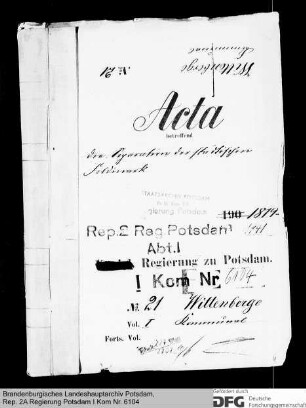 № 21
Wittenberge
Kommunal
Acta
betreffend
die Separation der städtischen
Feldmark
190 1874
Rep. 2 Reg. Potsdam
Abt. I
Regierung zu Potsdam.
I Kom Nr. 6104
№ 21 Wittenberge
Vol. I Kommunal
Forts. Vol.
Brandenburgisches Landeshauptarchiv Potsdam,
Rep. 2A Regierung Potsdam I Kom Nr. 6104
Gefördert durch
DFG Deutsche
Forschungsgemeinschaft